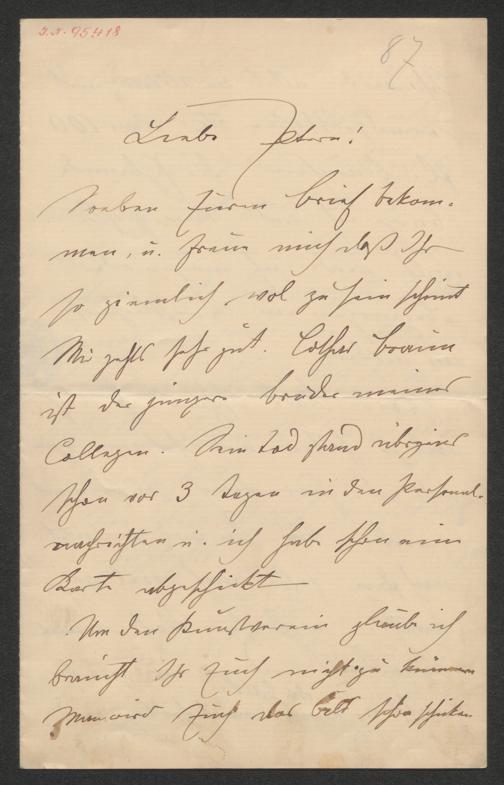 I.N. 95418
87
Liebe Eltern!
Soeben Euren Brief bekom-
men, u. freue mich daß Ihr
so ziemlich wol zu sein scheint
Mir gehts sehr gut. Lothar Braun
ist der jüngere Bruder meines
Collegen. Sein Tod stand übrigens
schon vor 3 Tagen in den Personal-
nachrichten u. ich habe schon eine
Karte abgeschickt
Um den Kunstverein glaube ich
braucht Ihr Euch nicht zu kümmern
Man wird Euch das Bild schon schicken